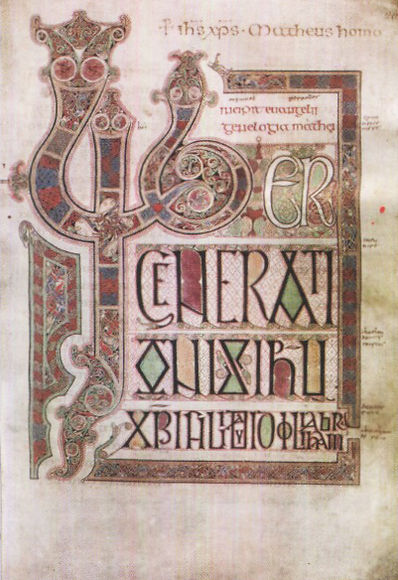 † ihs xps · Matheus homo
incipit euangelii
genelogia mathei
LIBER
GENERATI
ONIS IHU
XPI FILII DAUID FILII ABRAHAM